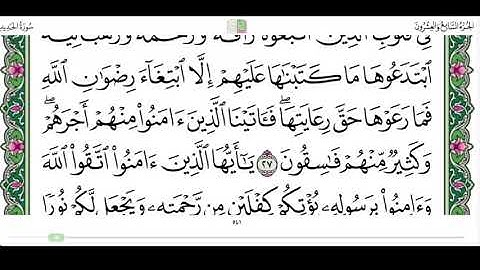 سُورَةُ الحَدِيدِ
الجُزءُ السَّابِعُ وَالعِشرُونَ
فِي قُلُوبِ الَّذِينَ اتَّبَعُوهُ رَأْفَةً وَرَحْمَةً وَرَهْبَانِيَّةً
ٱبْتَدَعُوهَا مَا كَتَبْنَٰهَا عَلَيْهِمْ إِلَّا ٱبْتِغَآءَ رِضْوَٰنِ ٱللَّهِ
فَمَا رَعَوْهَا حَقَّ رِعَايَتِهَا ۖ فَـَٔاتَيْنَا ٱلَّذِينَ ءَامَنُوا۟ مِنْهُمْ أَجْرَهُمْ ۖ
وَكَثِيرٌ مِّنْهُمْ فَٰسِقُونَ ٢٧ يَٰٓأَيُّهَا ٱلَّذِينَ ءَامَنُوا۟ ٱتَّقُوا۟ ٱللَّهَ
وَءَامِنُوا۟ بِرَسُولِهِۦ يُؤْتِكُمْ كِفْلَيْنِ مِن رَّحْمَتِهِۦ وَيَجْعَل لَّكُمْ نُورًا
٥٤١